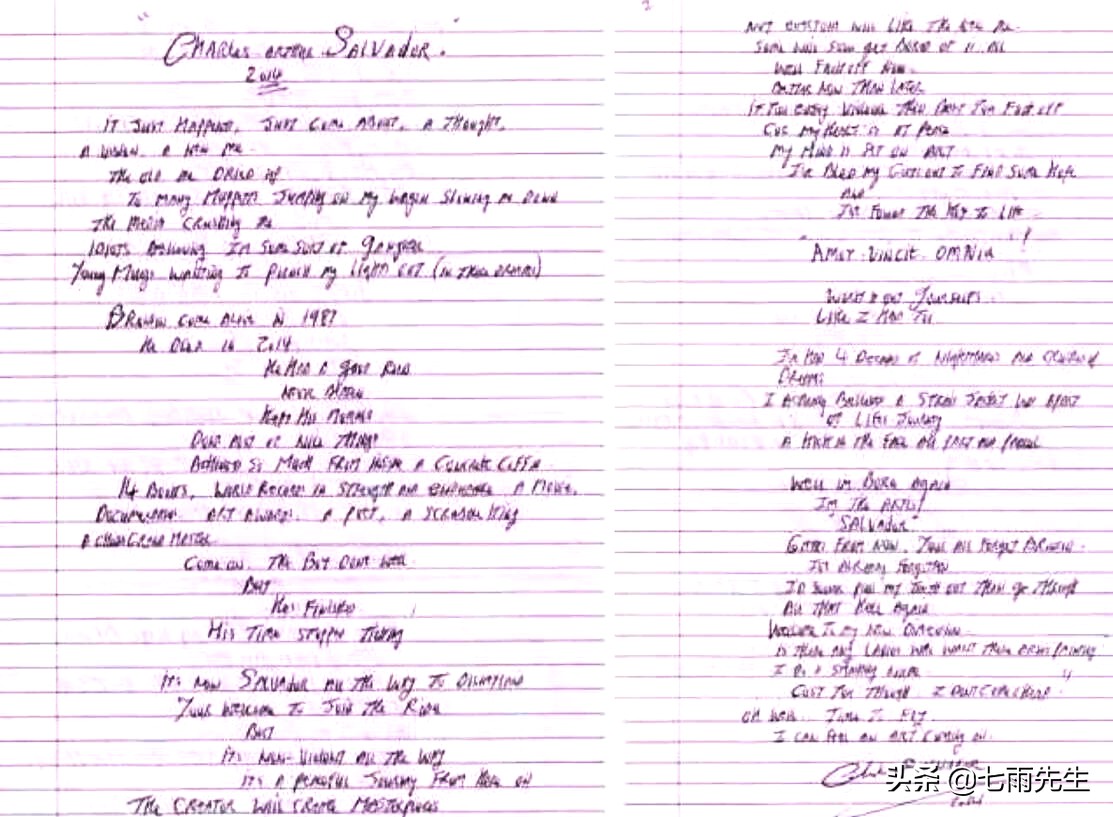 CHARLES ARTHUR SALVADOR.
2014
IT JUST HAPPENED, JUST COME ABOUT, A THOUGHT,
A VISION, A NEW ME
THE OLD ME DRIED UP
TO MANY MUPPETS JUMPING ON MY WAGON SLOWING ME DOWN
THE MEDIA CRUSHING ME
IDIOTS BELIEVING I'M SOME SORT OF GANGSTER
YOUNG MUGS WANTING TO PUNCH MY LIGHTS OUT (IN THEIR DREAMS)
BRONSON COME ALIVE IN 1987
HE DIED IN 2014
HE HAD A GOOD RUN
NEVER
KEPT HIS MORALS
DONE MOST OF HIS THINGS
ACHIEVED SO MUCH FROM INSIDE A CONCRETE COFFIN
14 BOOKS, WORLD RECORDS IN STRENGTH AND A MOVIE,
DOCUMENTARIES ART AWARDS. A POET, A
COME ON, THE BOY DONE WELL
BUT
HES FINISHED
HIS TIME STOPPED TICKING
IT'S NOW SALVADOR ALL THE WAY TO DISNEYLAND
YOUR WELCOME TO JOIN THE RIDE
BUT
IT'S NON-VIOLENT ALL THE WAY
IT'S A PEACEFUL JOURNEY FROM HERE ON
THE CREATOR WILL CREATE MASTERPIECES
2
NOT EVERYONE WILL LIKE THE NEW ME
SOME WILL SOON GET BORED OF IT ALL
WELL FUCK OFF NOW.
BETTER NOW THAN LATER
CUS MY HEART IS AT PEACE
MY MIND IS SET ON ART
I'VE BLED MY GUTS OUT TO FIND SOME HOPE
AND
I'VE FOUND THE KEY TO LIFE
"AMOR VINCIT OMNIA"!
WORK IT OUT YOURSELFS
LIKE I HAD TO
I'VE HAD 4 DECADES OF NIGHTMARES AND
DREAMS
I ACTUALLY BELIEVED A
OF LIFES JOURNEY
A KICK IN THE FACE
WELL I'M BORN AGAIN
I'M THE ARTIST
"SALVADOR"
FROM NOW. YOUS ALL FORGET BRONSON
I'VE ALREADY FORGOTTEN
I'D SOONER PULL MY TEETH OUT THAN GO THROUGH
ALL THAT HELL AGAIN
WELCOME TO MY NEW DIMENSION
IS THERE ANY LADIES WHO WANT THERE
COST YOU THOUGH. I DONT COME CHEAP
OH WELL. TIME TO FLY.
I CAN FEEL AN ART COMING ON.
头条 @七雨先生
2014